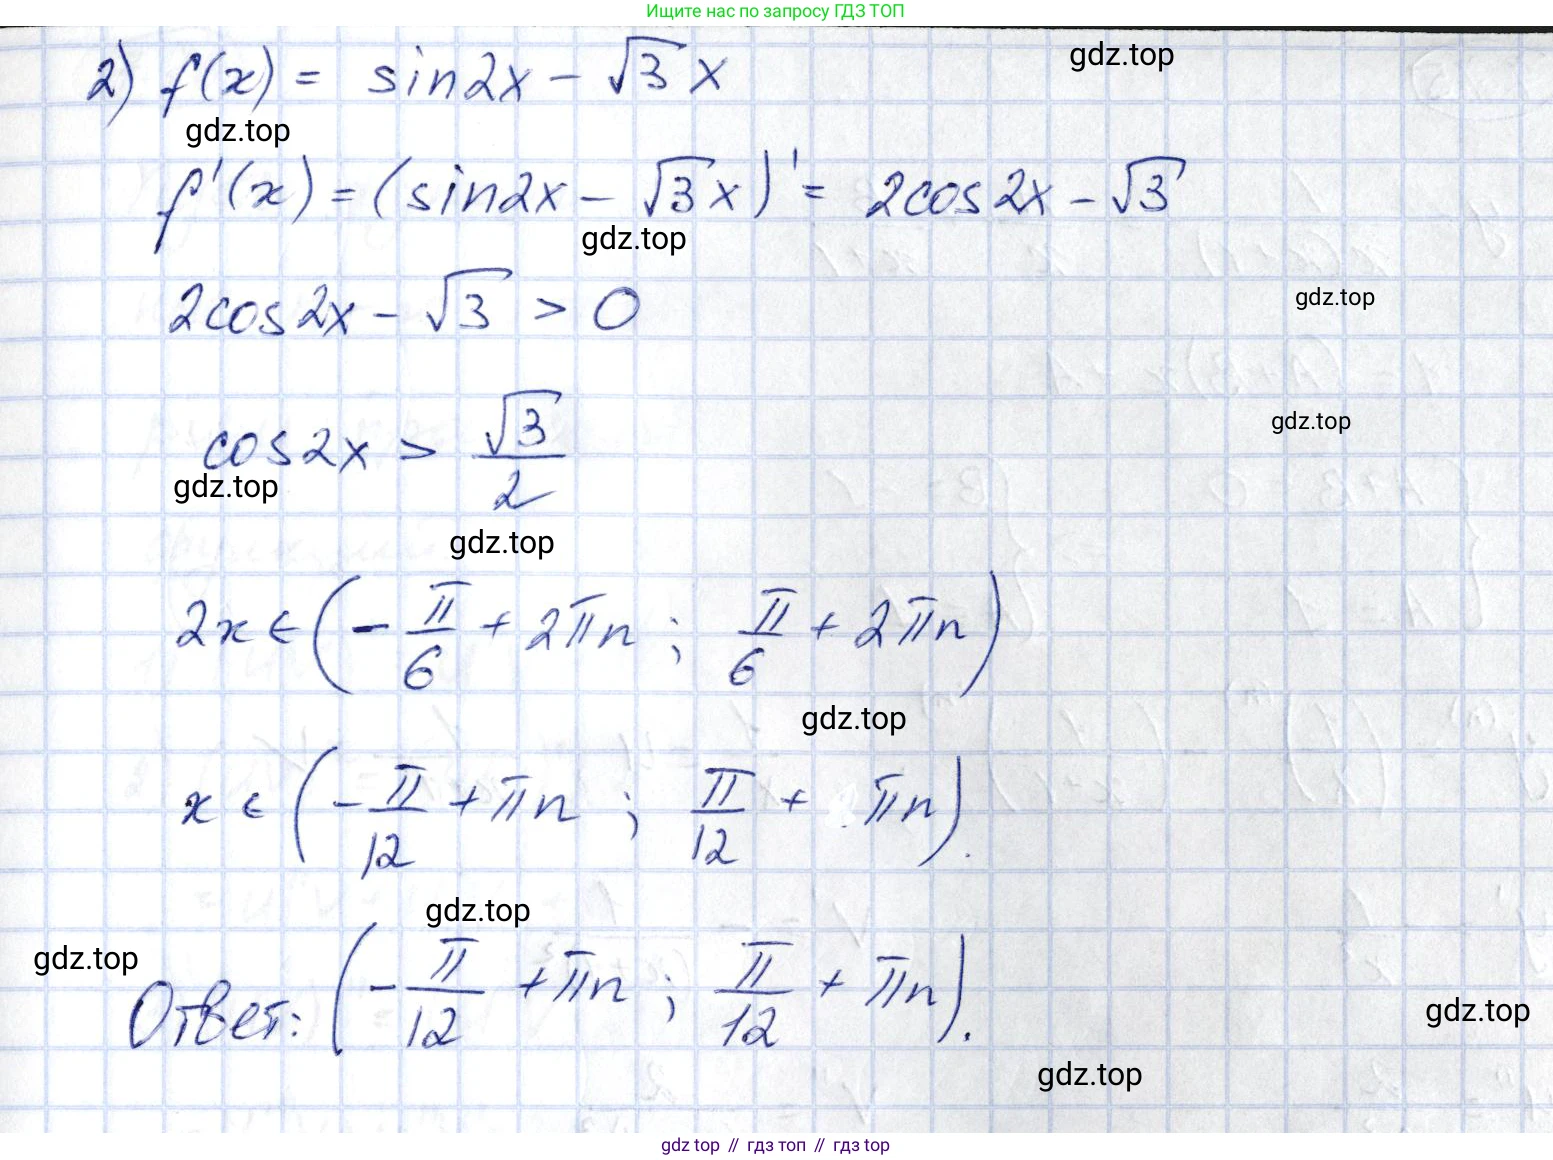 Ищите нас по запросу ГДЗ ТОП
2) f(x) = sin2x − √3 x
gdz.top
gdz.top
f'(x) = (sin2x − √3 x)' = 2cos2x − √3
gdz.top
2cos2x − √3 > 0
gdz.top
cos2x > √3/2
gdz.top
gdz.top
gdz.top
2x ∈ (−π/6 + 2πn ; π/6 + 2πn)
gdz.top
x ∈ (−π/12 + πn ; π/12 + πn).
gdz.top
gdz.top
Ответ: (−π/12 + πn ; π/12 + πn).
gdz.top
gdz.top
gdz top // гдз топ // гдз top